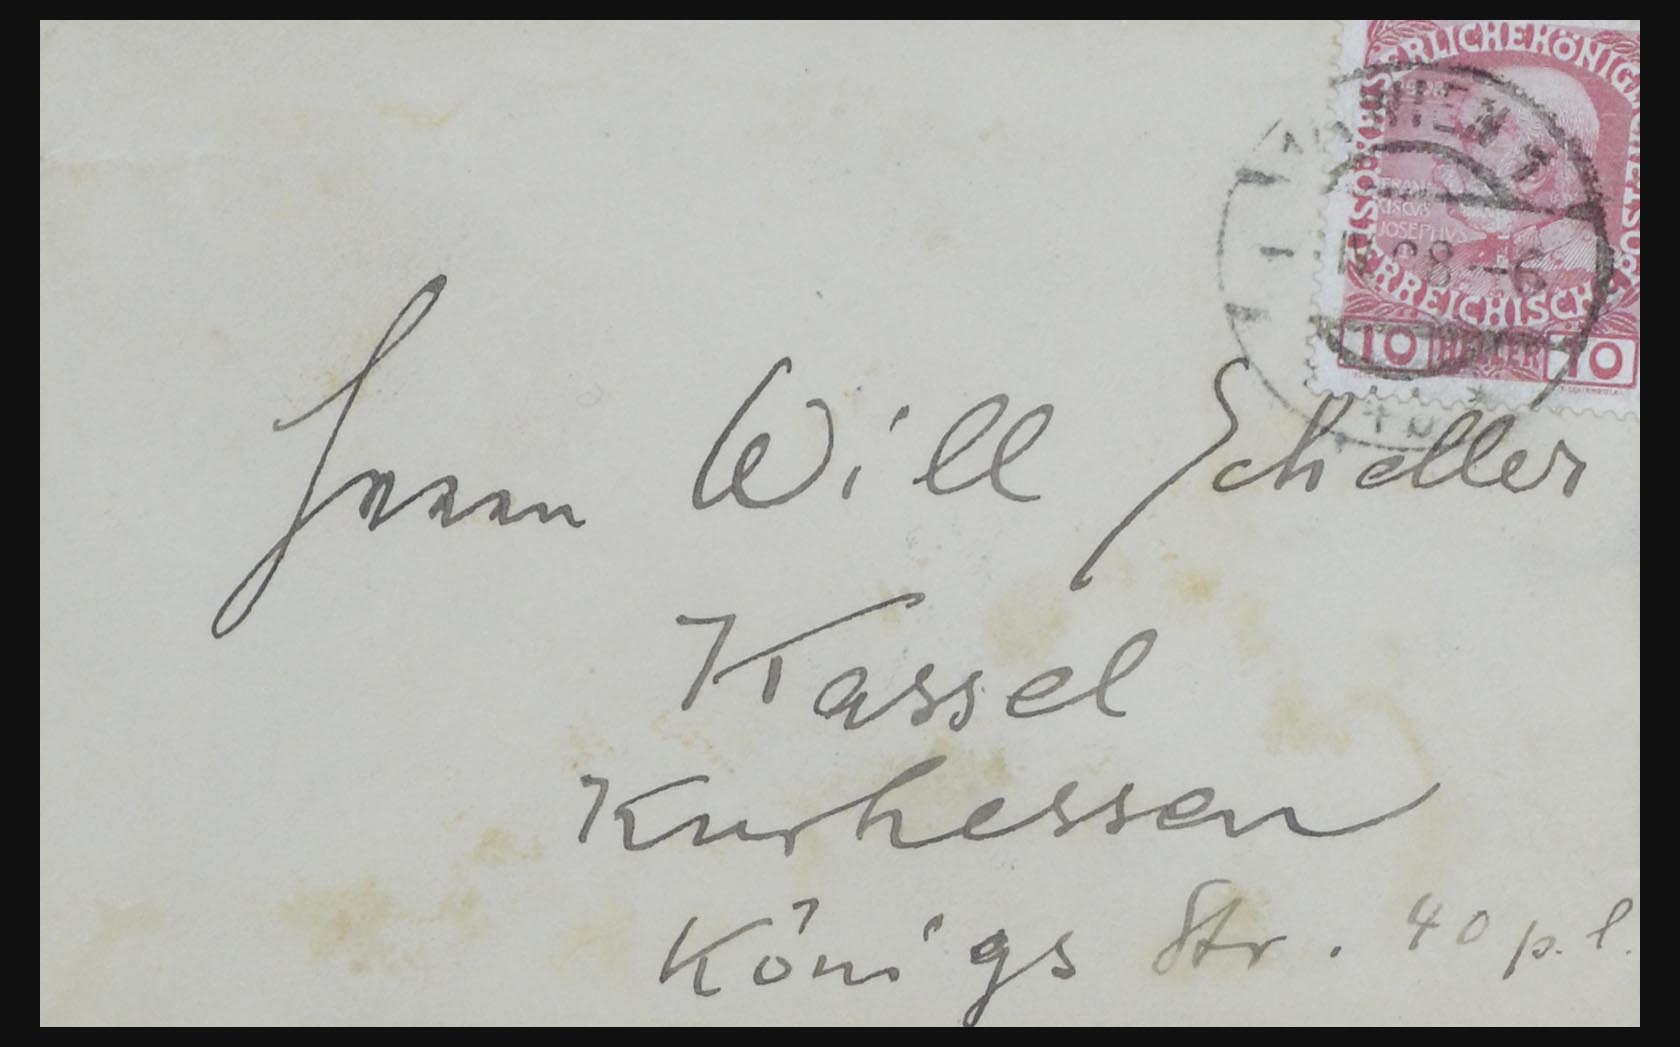 KAISERLICHE KÖNIGLICHE ÖSTERREICHISCHE
1908
FRAN
CISCVS
JOSEPHVS
10 HELLER 10
WIEN 1
08 -6
Herrn Will Scheller
Kassel
Kurhessen
Königs Str. 40 p. l.